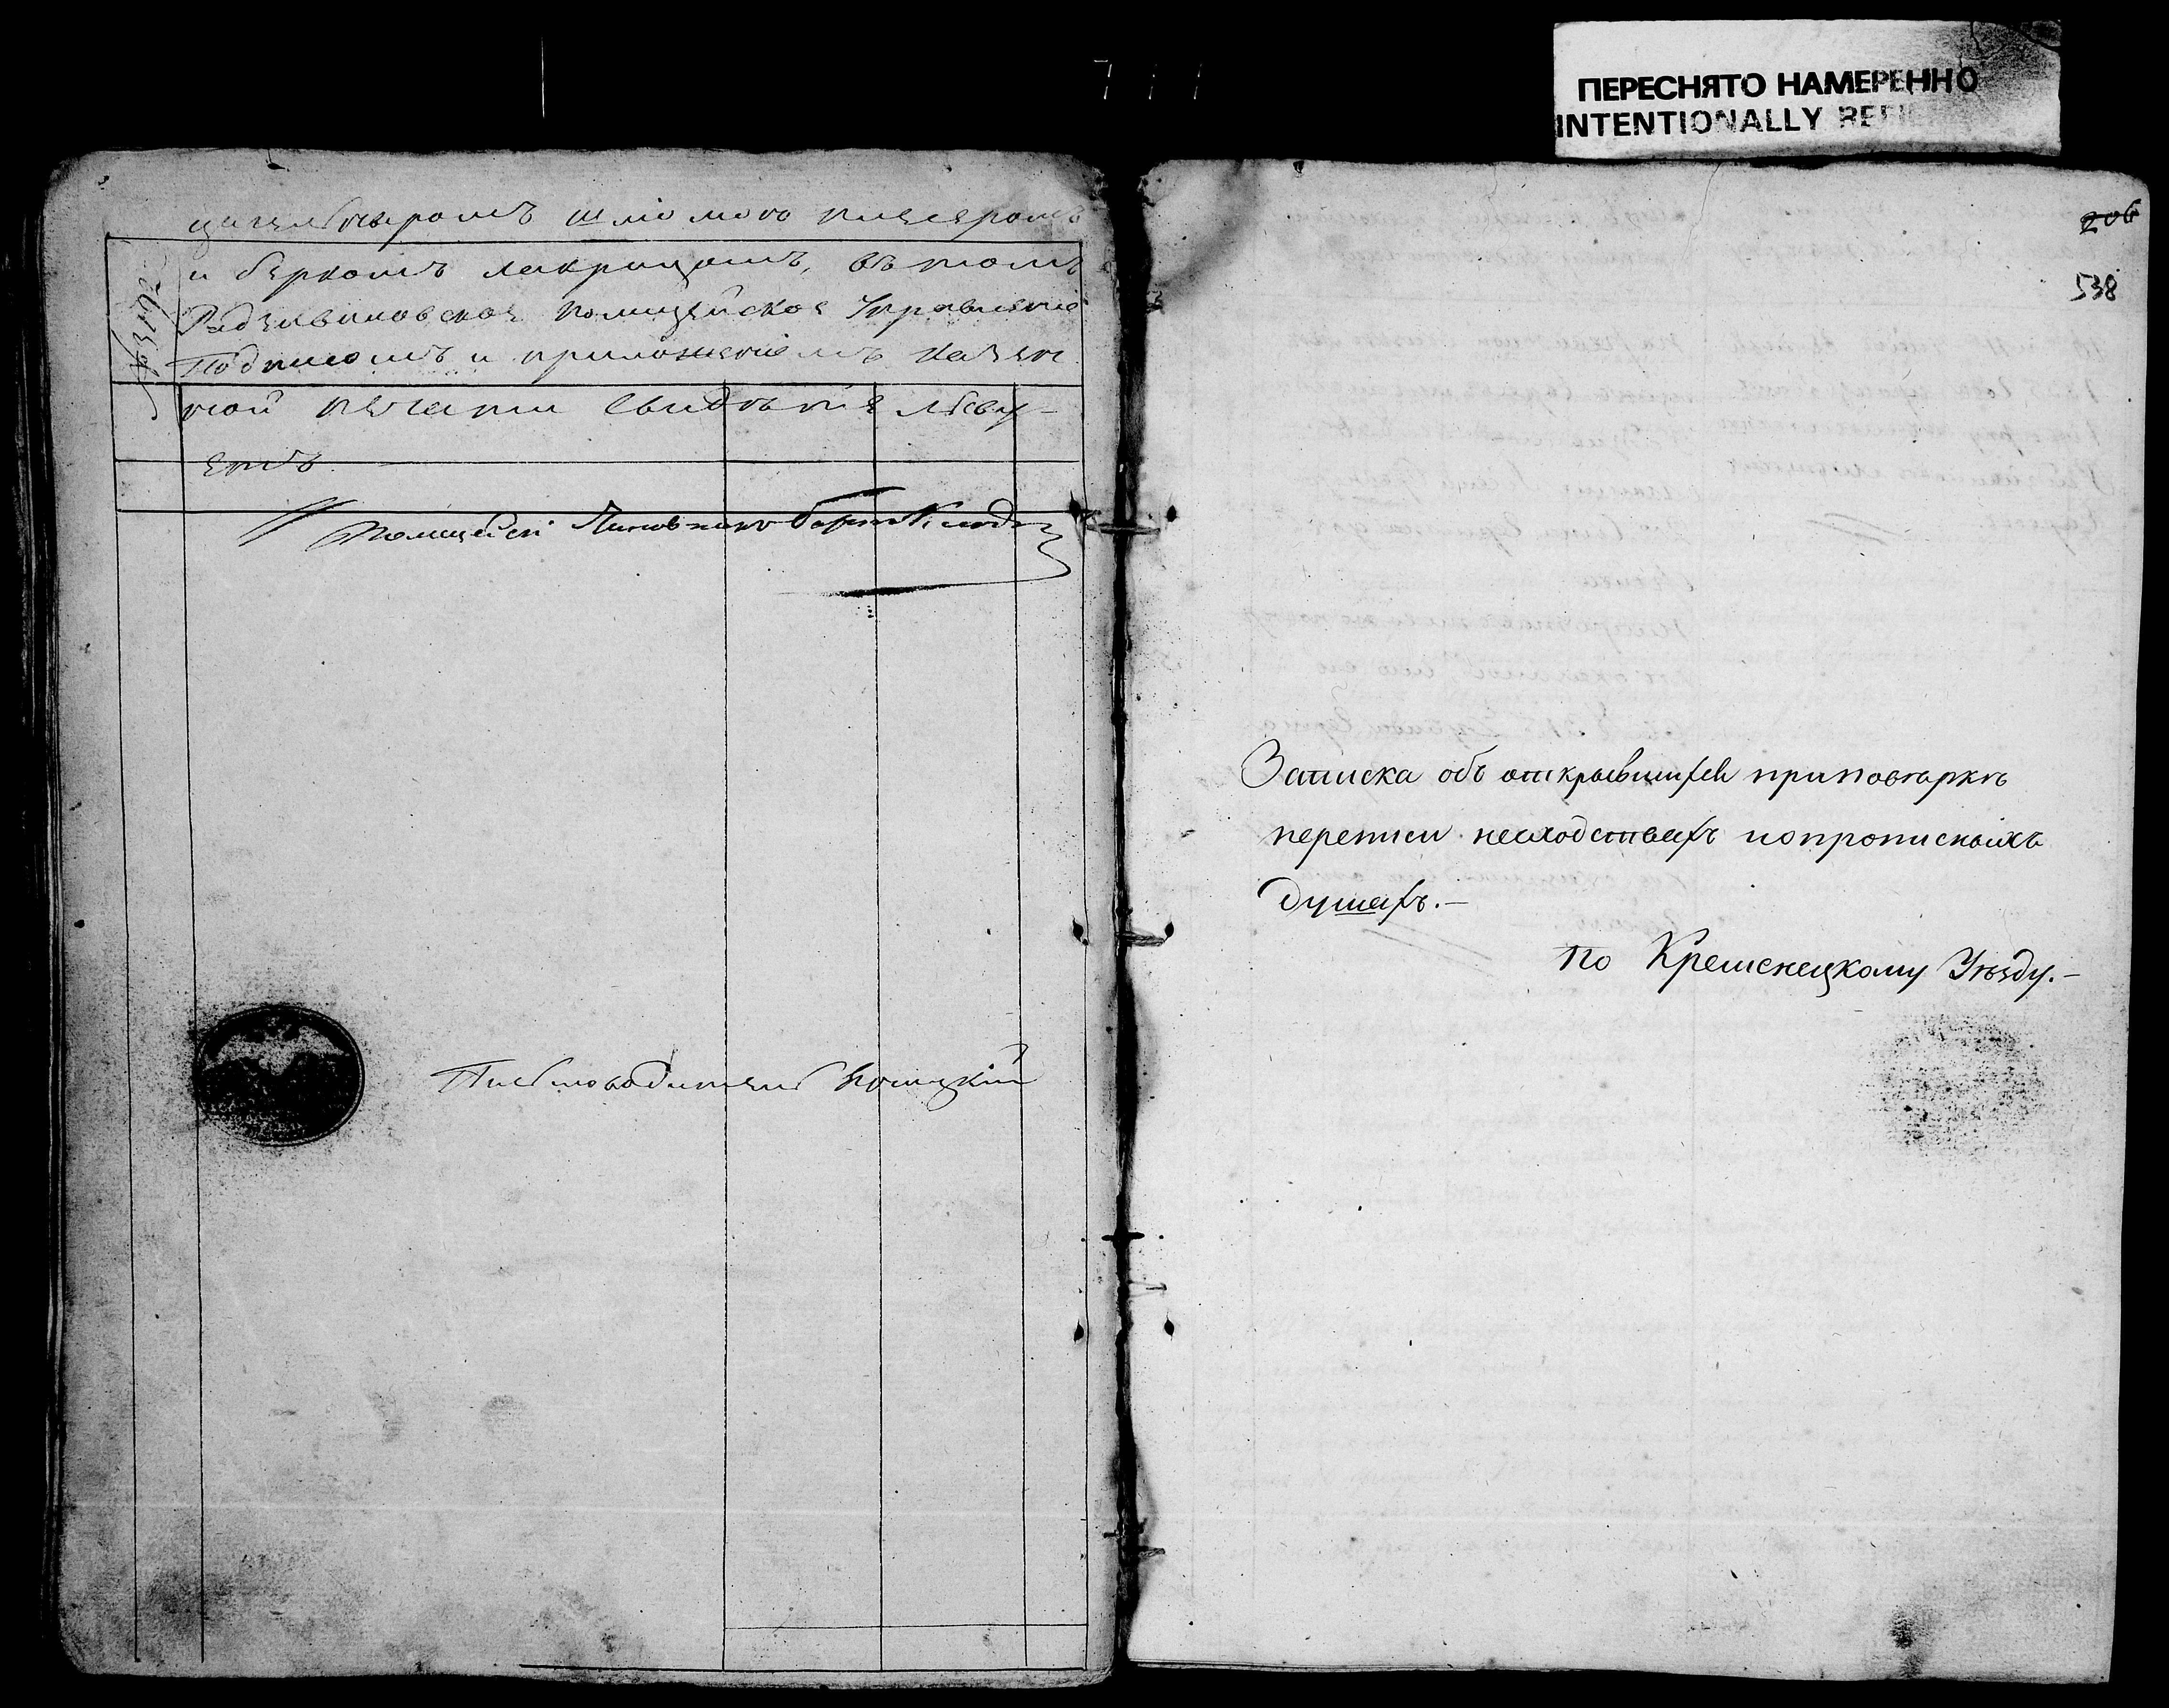 ПЕРЕСНЯТО НАМЕРЕННО
INTENTIONALLY
и беркомъ лакрицомъ, въ томъ
Радзивиловское полицейское Управленіе
Подписомъ и приложеніемъ казен
ной печати свидѣтельству-
етъ
Полицейскій
Письмоводитель
206
538
Записка объ открывшихся приповѣркѣ
переписи несходствахъ ипрописныхъ
душахъ.—
по Кременецкому Уѣзду.—